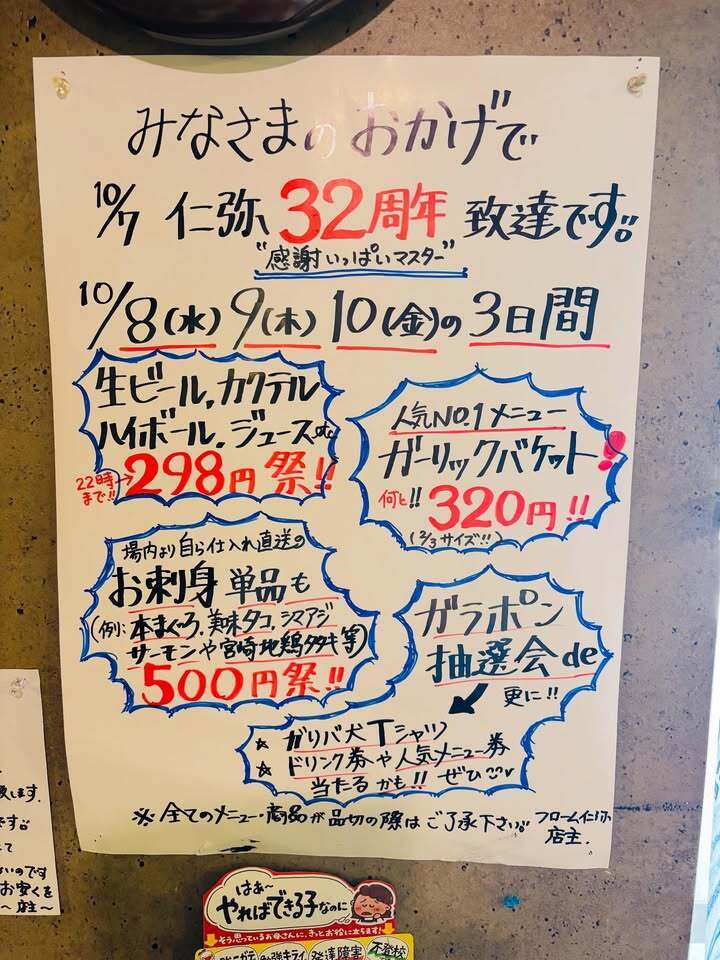 みなさまのおかげで
10/7 仁弥 32周年 致達です!!
"感謝いっぱいマスター"
10/8(水) 9(木) 10(金)の3日間
生ビール,カクテル
ハイボール,ジュースetc
22時まで!!→298円祭!!
人気NO.1メニュー
ガーリックバケット!
何と!!320円!!
(2/3サイズ!!)
場内より自ら仕入れ直送の
お刺身単品も
(例:本まぐろ,美味タコ,シマアジ
サーモンや宮崎地鶏タタキ等)
500円祭!!
ガラポン
抽選会de
更に!!
☆ ガリバ犬Tシャツ
☆ ドリンク券や人気メニュー券
当たるかも!! ぜひ
※全てのメニュー・商品が品切の際はご了承下さい!! フローム仁弥
店主.
します.
です!!
て
いのです
お安くを
〜店主〜
はぁ〜
やればできる子なのに
そう思っているお母さんに、きっとお役に立ちます!
発達障害
不登校